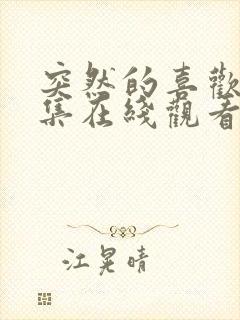 突然的喜歡
集在綫觀看
江晃晴